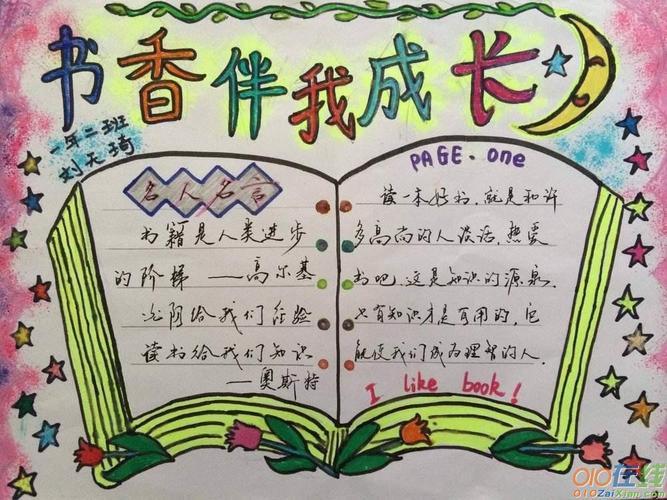 书香伴我成长
一年二班
刘天琦
名人名言
书籍是人类进步
的阶梯——高尔基
沧阿给我们经验
读书给我们知识
——奥斯特
PAGE.one
读一本好书，就是和许
多高尚的人谈话，热爱
书吧，这是知识的源泉，
只有知识才是有用的，它
能使我们成为理智的人．
I like book!
010在线
010ZaiXian.com